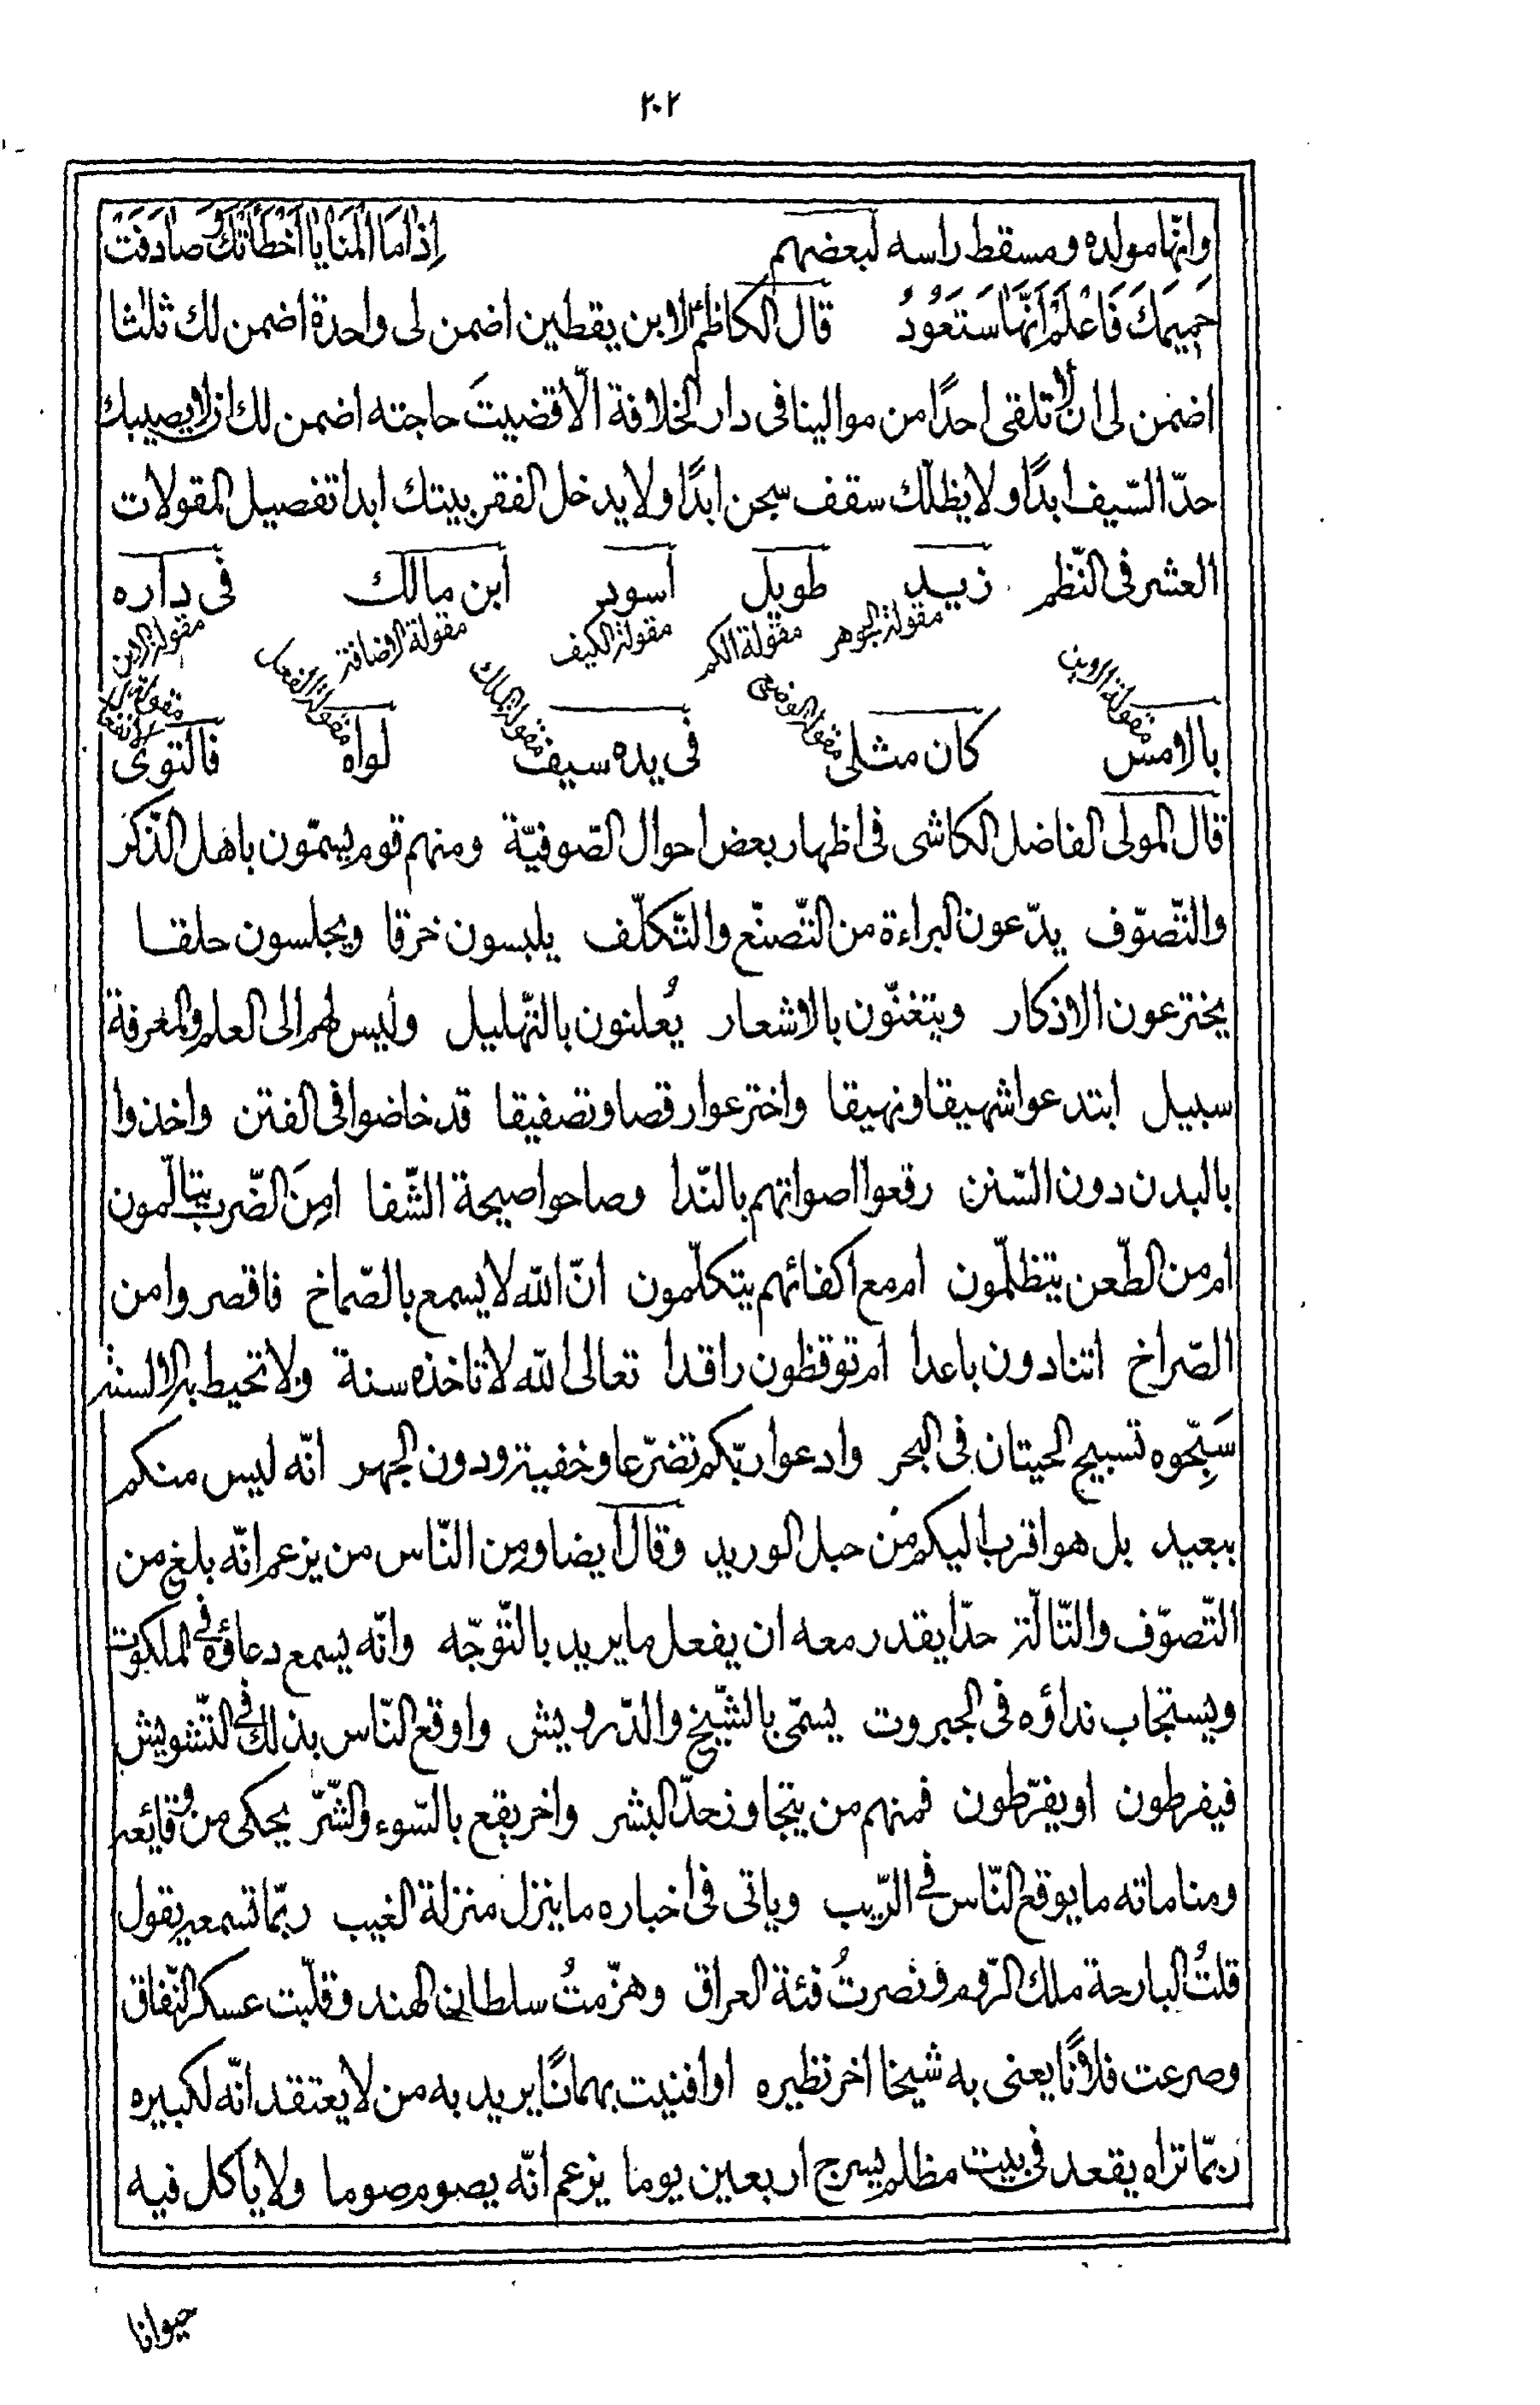 ٢٠٢
وانّها مولده ومسقط راسه لبعضهم اِذٰا مَا الْمَنَايٰا اَخْطَأَتْكَ وَصٰادَفَتْ
حَمِيمَكَ فَاعْلَمْ اَنَّهٰا سَتَعُودُ قال الكاظم ع لابن يقطين اضمن لى واحدة اضمن لك ثلثا
اضمن لى ان لا تلقى احدًا من موالينا فى دار الخلافة الّا قضيتَ حاجته اضمن لك ان لا يصيبك
حدّ السّيف ابدًا ولا يظلّك سقف سجن ابدًا ولا يدخل الفقر بيتك ابدا تفصيل المقولات
العشر فى النّظم زيد طويل اسود ابن مالك فى داره
مقولة الجوهر مقولة الكم مقولة الكيف مقولة الاضافة مقولة الاين
بالامس كان مثلى فى يده سيف لواه فالتوى
قال المولى الفاضل الكاشى فى اظهار بعض احوال الصّوفيّة ومنهم قوم يسمّون باهل الذّكر
والتّصوّف يدّعون البراءة من التّصنّع والتّكلّف يلبسون خرقا ويجلسون حلقا
يخترعون الاذكار ويتغنّون بالاشعار يُعلنون بالتّهليل وليس لهم الى العلم والمعرفة
سبيل ابتدعوا شهيقا ونهيقا واخترعوا رقصا وتصفيقا قد خاضوا فى الفتن واخذوا
بالبدن دون السّنن رفعوا اصواتهم بالنّدا وصاحوا صيحة الشّفا امِنَ الضّرب يتالّمون
ام من الطّعن يتظلّمون ام مع اكفائهم يتكلّمون انّ الله لا يسمع بالصّماخ فاقصروا من
الصّراخ اتنادون باعدا ام توقظون راقدا تعالى الله لا تاخذه سنة ولا تحيط به الالسنة
سَبِّحوه تسبيح الحيتان فى البحر وادعوا ربّكم تضرّعا وخفية ودون الجهر انّه ليس منكم
ببعيد بل هو اقرب اليكم من حبل الوريد وقال ايضا ومن النّاس من يزعم انّه بلغ من
التّصوّف والتّالّه حدّا يقدر معه ان يفعل ما يريد بالتّوجّه وانّه يسمع دعاؤه فى الملكوت
ويستجاب نداؤه فى الجبروت يسمّى بالشّيخ والدّرويش واوقع النّاس بذلك فى التّشويش
فيفرطون او يفرّطون فمنهم من يتجاوز حدّ البشر واخر يقع بالسّوء والشّرّ يحكى من وقائعه
ومناماته ما يوقع النّاس فى الرّيب وياتى فى اخباره ما ينزل منزلة الغيب ربّما تسمعه يقول
قتلتُ البارحة ملك الرّوم ونصرتُ فئة العراق وهزّمتُ سلطان الهند وقلّبت عسكر النّفاق
وصرعت فلانًا يعنى به شيخا اخر نظيره او افنيت بهمانًا يريد به من لا يعتقد انّه لكبيره
ربّما تراه يقعد فى بيت مظلم يسرج اربعين يوما يزعم انّه يصوم صوما ولا ياكل فيه
حيوانا